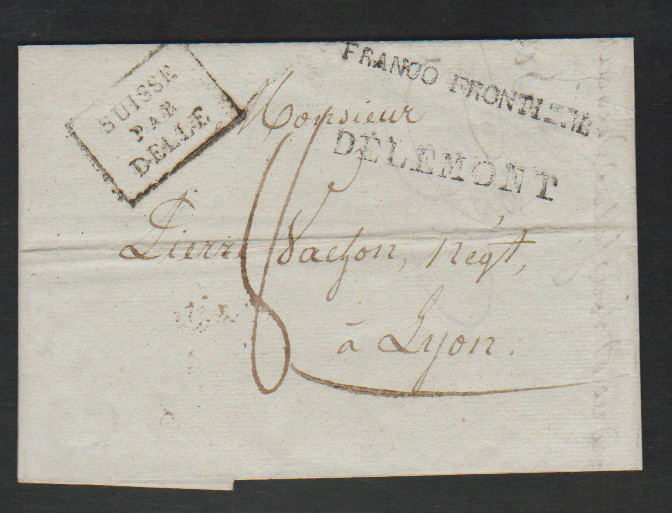 SUISSE
PAR
DELLE
FRANCO FRONTIERE
DELEMONT
Monsieur
Pierre Vachon, Négt,
à Lyon.
6